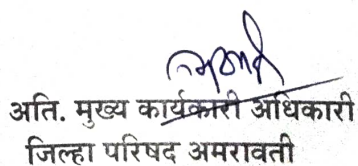 अति. मुख्य कार्यकारी अधिकारी
जिल्हा परिषद अमरावती